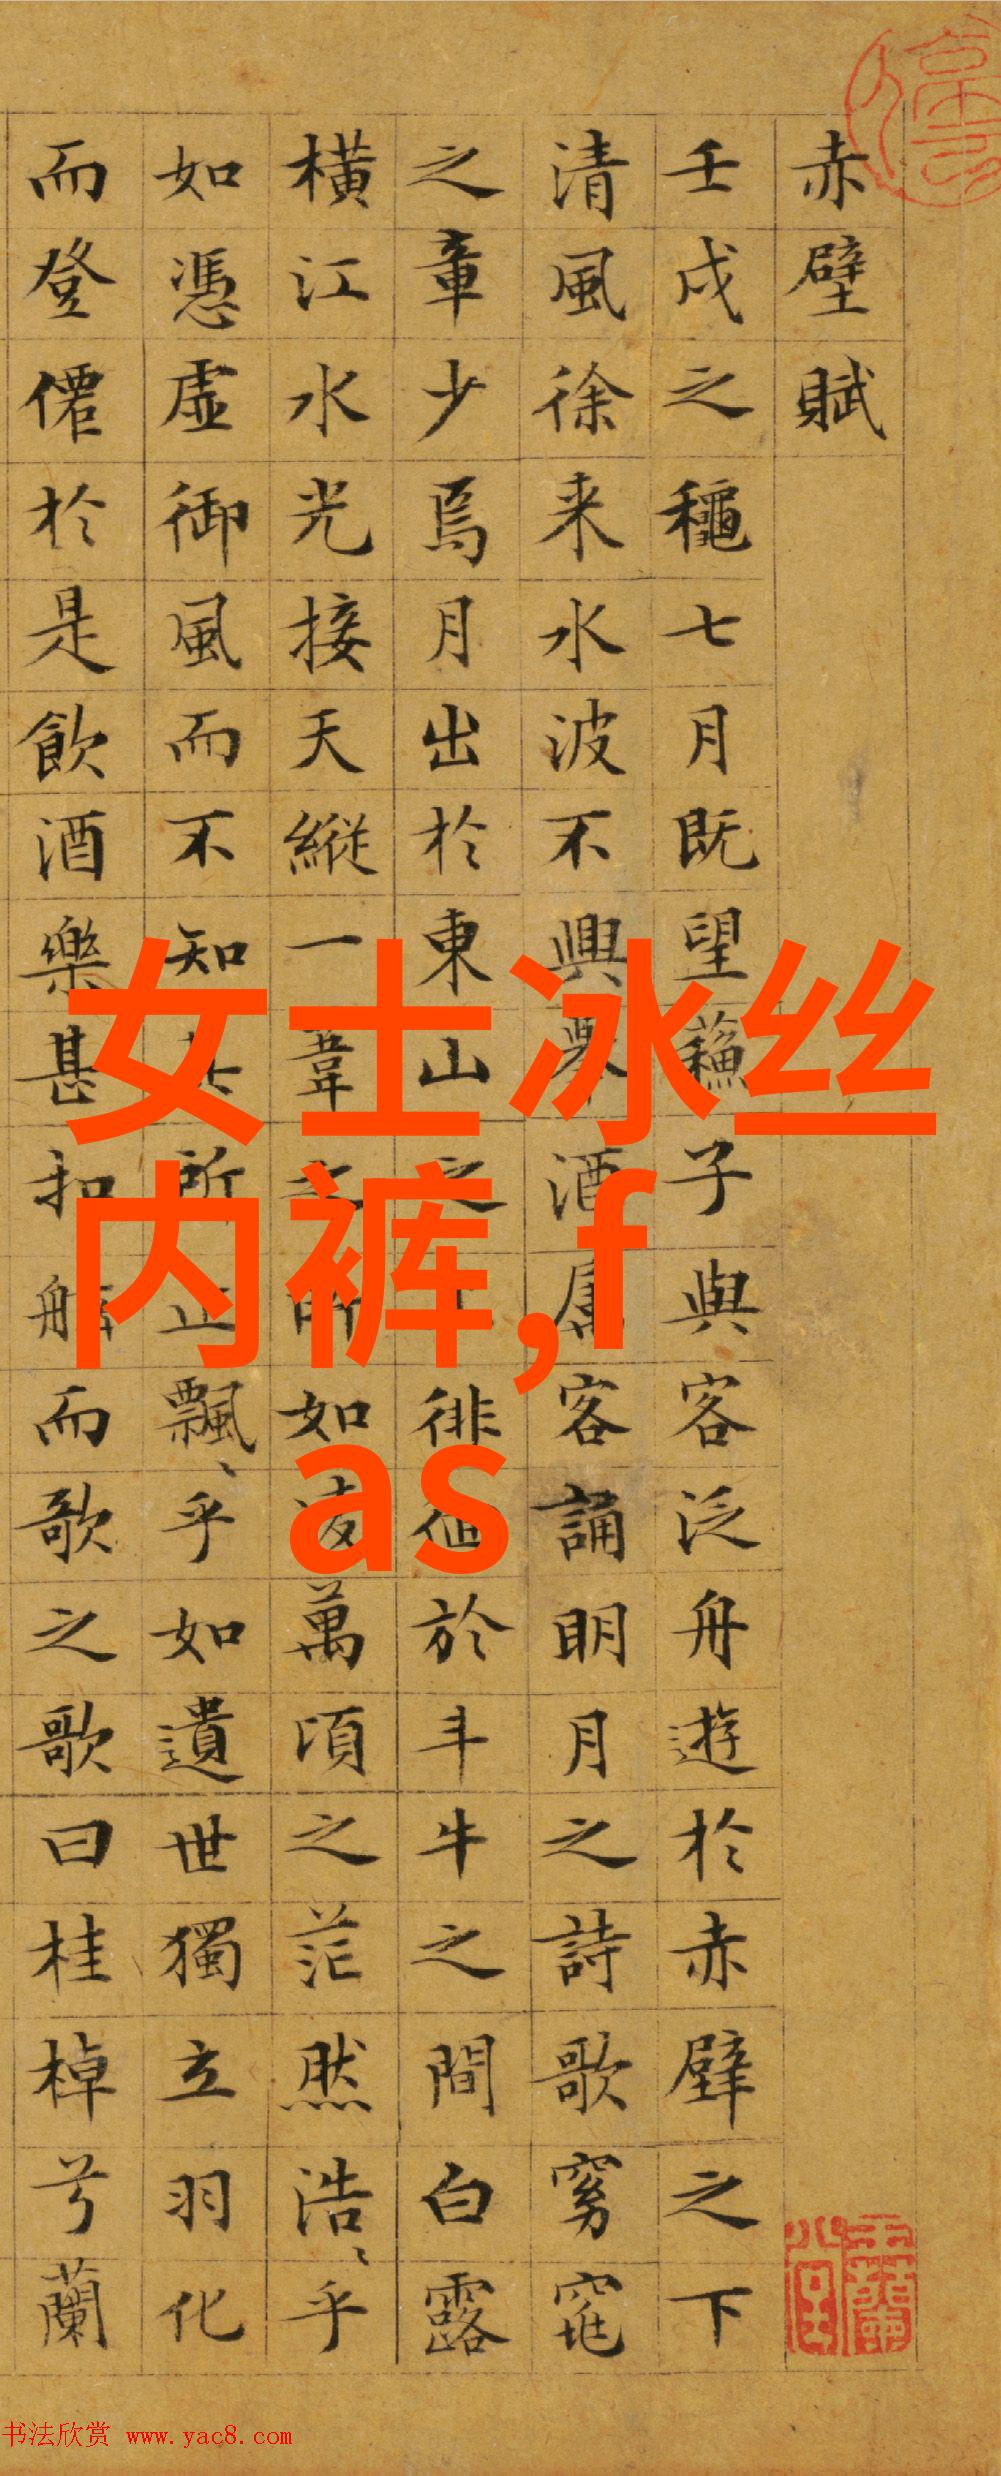 赤壁賦
壬戌之穐七月既望蘓子與客泛舟遊於赤壁之下
清風徐来水波不興舉酒属客誦眀月之詩歌窈窕
之章少焉月出於東山之上徘徊於斗牛之間白露
橫江水光接天縱一葦之所如凌萬頃之茫然浩、乎
如憑虛御風而不知其所止飄、乎如遺世獨立羽化
而登僊於是飲酒樂甚扣舷而歌之歌曰桂棹兮蘭
女士冰丝
内裤,f
as
书法欣赏 www.yac8.com